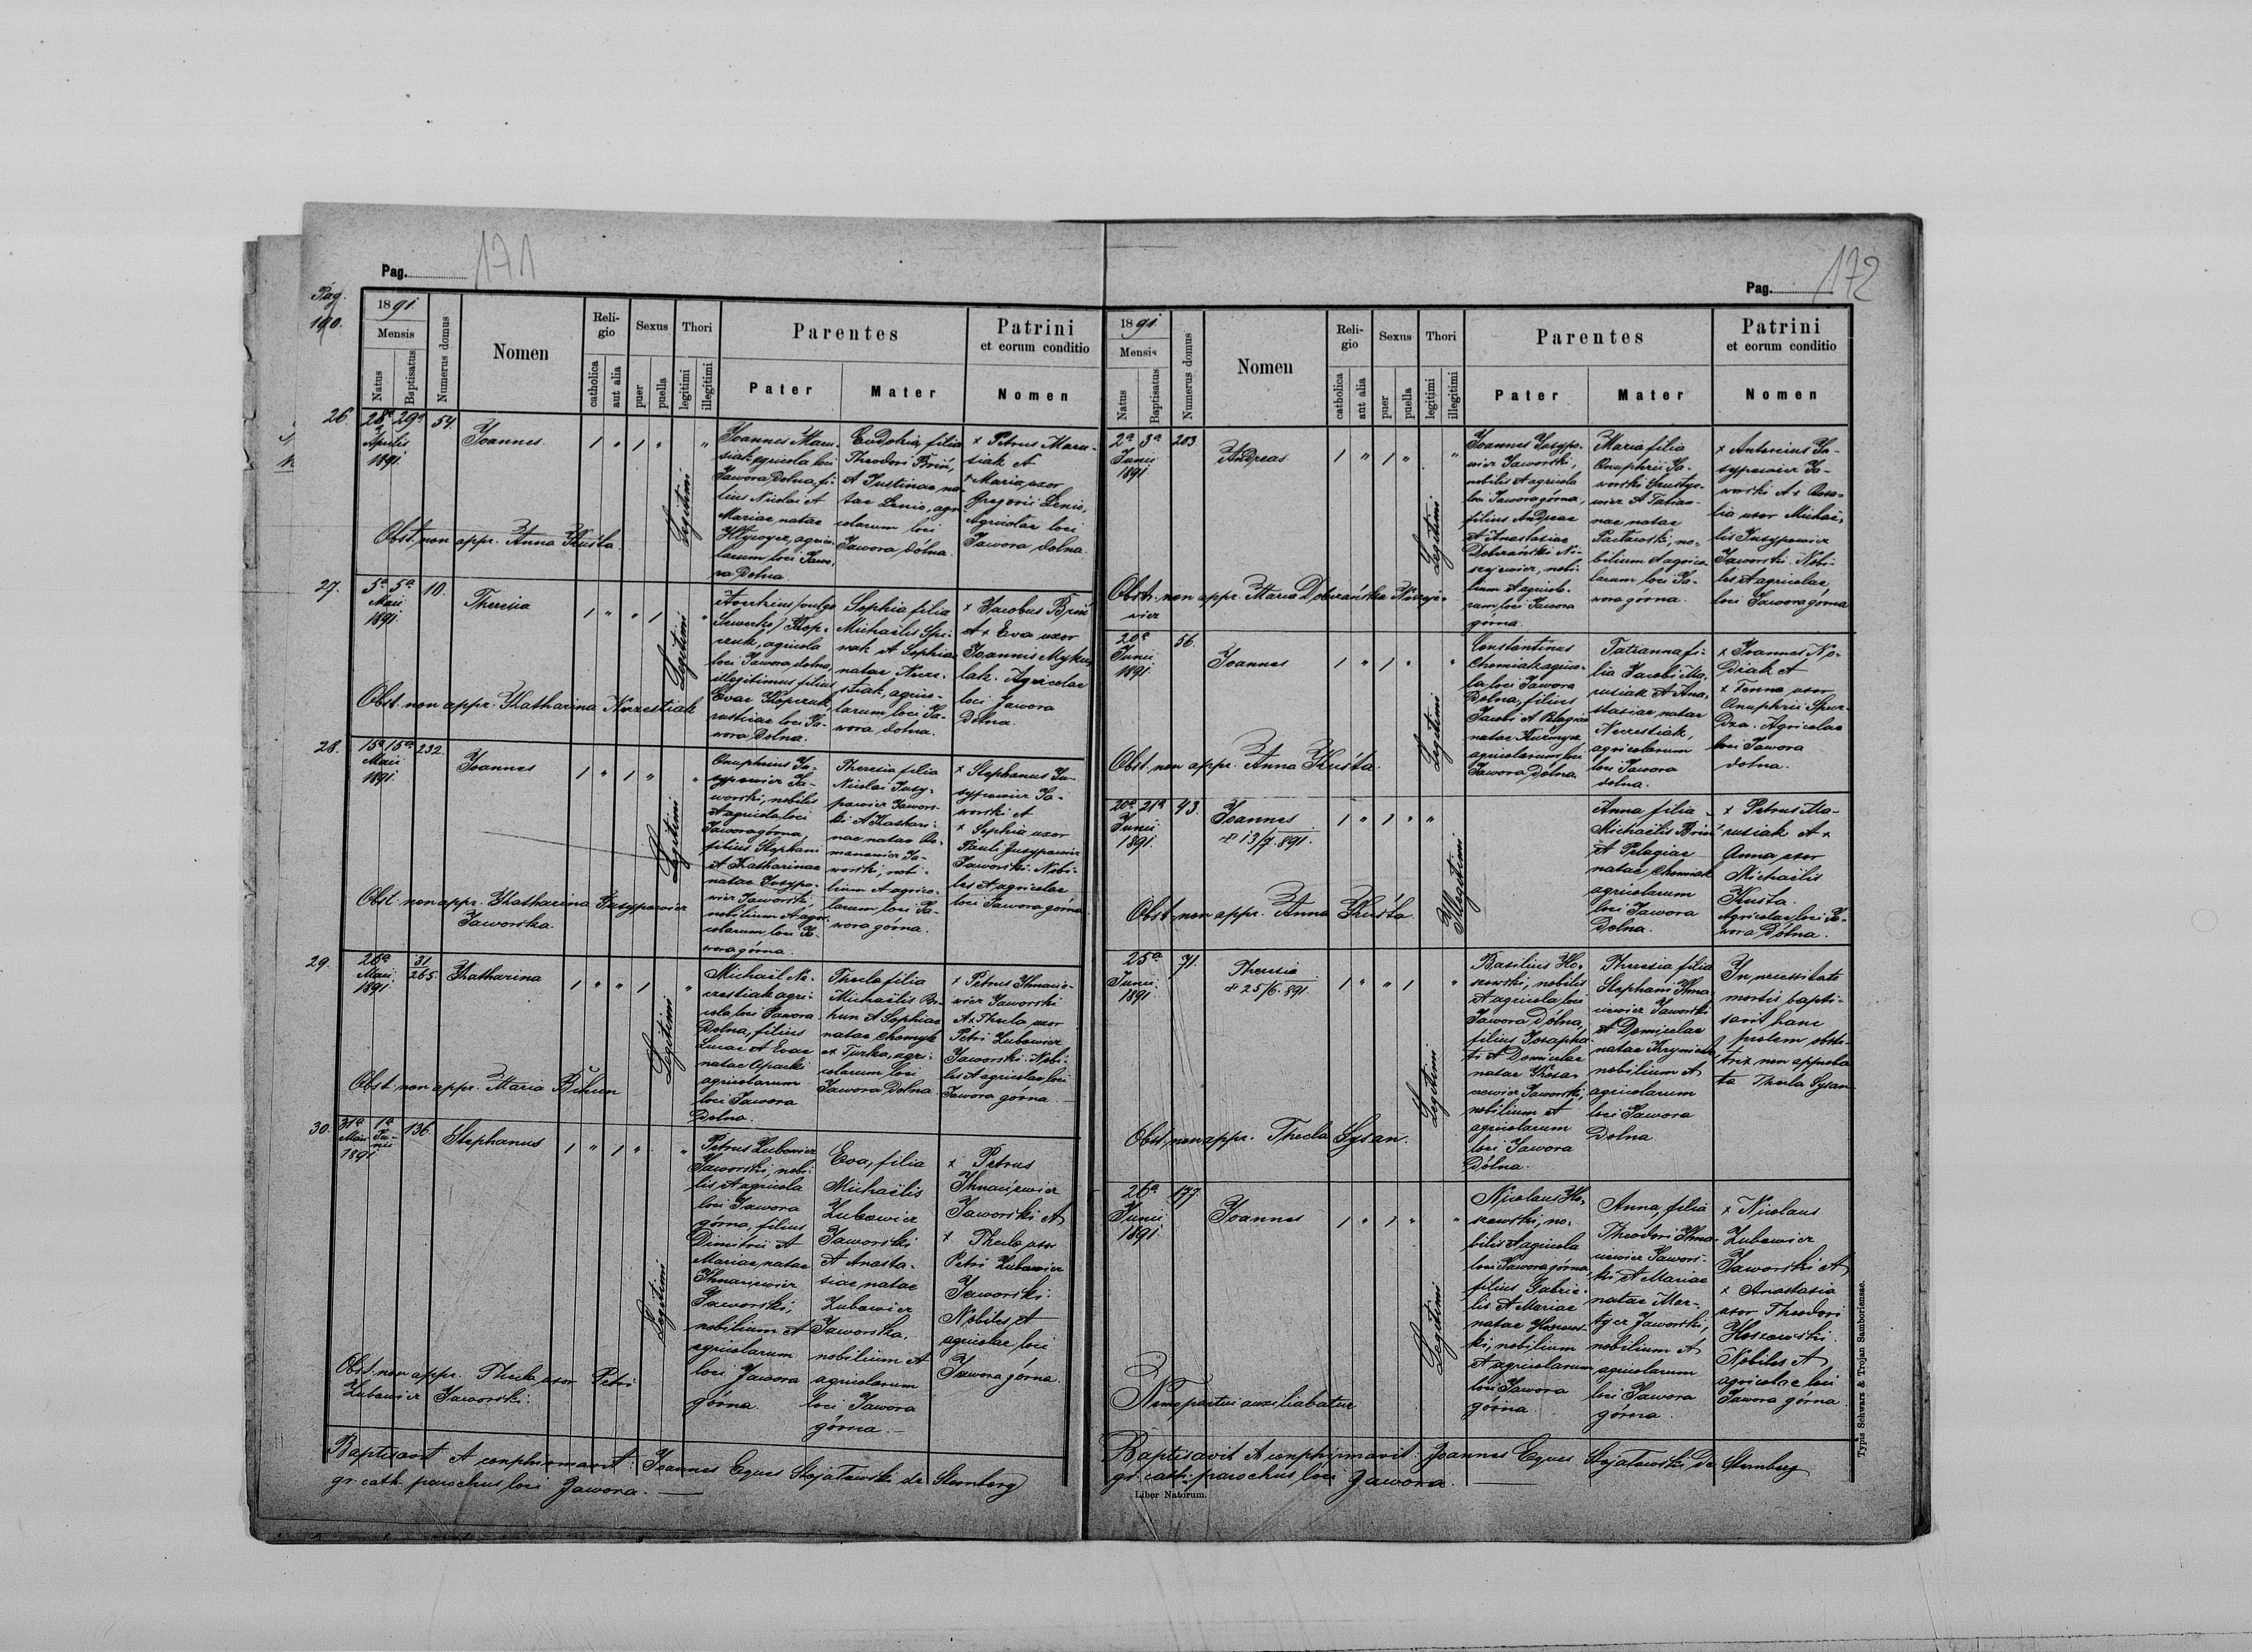 Pag. 171
Pag.
190.
1891.
Mensis
Natus
Baptisatus
Numerus domus
Nomen
Religio
catholica
aut alia
Sexus
puer
puella
Thori
legitimi
illegitimi
Parentes
Pater
Mater
Patrini
et eorum conditio
Nomen
26.
28a 29a
Aprilis
1891.
54.
Joannes
1 " 1 " "
Legitimi
Joannes Maru-
siak agricola loci
Jawora Dolna, fi-
lius Nicolai et
Mariae natae
agrico-
larum loci Jawo-
ra Dolna
Eudokia, filia
Theodori Brin,
et Justinae, na-
tae Lenio, agri-
colarum loci
Jawora dólna.
+ Petrus Maru-
siak et
+ Maria uxor
Gregorii Lenio,
Agricolae loci
Jawora dolna.
Obst. non appr. Anna Kuśta.
27.
5a 5a
Maii
1891.
10.
Theresia
1 " " 1 "
Legitimi
agricola
loci Jawora dolna,
illegitimus filius
Evae Kopczak,
rusticae loci Ja-
wora Dolna.
Sophia filia
Michaëlis Spi-
nak et Sophiae
natae Necze-
stiak, agrico-
larum loci Ja-
wora dolna.
+ Jacobus Brin
et + Eva uxor
Joannis Myku-
lak. Agricolae
loci Jawora
Dolna.
Obst. non appr. Katharina Neczestiak
28.
15a 15a
Maii
1891.
232.
Joannes
1 " 1 " "
Legitimi
Onuphrius Ju-
sypowicz Ja-
worski, nobilis
et agricola loci
Jawora górna,
filius Stephani
et Katharinae
natae Josypo-
wicz Jaworski,
nobilium et agri-
colarum loci Ja-
wora górna.
Theresia filia
Nicolai Jusy-
powicz Jawors-
ki et Kathari-
nae natae Ro-
manowicz Ja-
worski, nobi-
lium et agrico-
larum loci Ja-
wora górna.
+ Stephanus Ju-
sypowicz Ja-
worski et
+ Sophia uxor
Pauli Jusypowicz
Jaworski. Nobi-
les et agricolae
loci Jawora górna
Obst. non appr. Katharina Jusypowicz
Jaworska.
29.
26a 31
Maii
1891.
265.
Katharina
1 " " 1 "
Legitimi
Michaël Ne-
czestiak agri-
cola loci Jawora
Dolna, filius
Lucae et Evae
natae Oparki
agricolarum
loci Jawora
Dolna.
Thecla filia
Michaëlis Bi-
hun et Sophiae
natae Chomyk
ex Turka, agri-
colarum loci
Jawora Dolna
+ Petrus Ihnacie-
wicz Jaworski
et + Thecla uxor
Petri Zubowicz
Jaworski. Nobi-
les et agricolae loci
Jawora górna.
Obst. non appr. Maria Bihun
30.
31a 1a
Maii Ju-
nii
1891.
136.
Stephanus
1 " 1 " "
Legitimi
Petrus Zubowicz
Jaworski, nobi-
lis et agricola
loci Jawora
górna, filius
Dimitrii et
Mariae, natae
Ihnaciewicz
Jaworski,
nobilium et
agricolarum
loci Jawora
górna.
Eva, filia
Michaëlis
Zubowicz
Jaworski
et Anasta-
siae, natae
Zubowicz
Jaworska,
nobilium et
agricolarum
loci Jawora
górna.
+ Petrus
Ihnaciewicz
Jaworski et
+ Thecla uxor
Petri Zubowicz
Jaworski.
Nobiles et
agricolae loci
Jawora górna.
Obst. non appr. Thecla uxor Petri
Zubowicz Jaworski.
Baptisavit et conphirmavit: Joannes Eques Stojałowski de Sternberg
gr. cath. parochus loci Jawora.
Pag. 172
1891.
Mensis
Natus
Baptisatus
Numerus domus
Nomen
Religio
catholica
aut alia
Sexus
puer
puella
Thori
legitimi
illegitimi
Parentes
Pater
Mater
Patrini
et eorum conditio
Nomen
2a 3a
Junii
1891
203
Andreas
1 " 1 " "
Legitimi
Joannes Jusypo-
wicz Jaworski,
nobilis et agricola
loci Jawora górna,
filius Andreae
et Anastasiae
nobi-
lium et agricola-
rum loci Jawora
górna.
Maria filia
Onuphrii Ja-
worski
et Tatian-
nae natae
no-
bilium et agrico-
larum loci Ja-
wora górna.
+ Antonius Ju-
sypowicz Ja-
worski et + Rosa-
lia uxor Michaë-
lis Jusypowicz
Jaworski. Nobi-
les et agricolae
loci Jawora górna
Obstr. non appr. Maria
20a
Junii
1891.
56.
Joannes
1 " 1 " "
Legitimi
Constantinus
Chomiak agrico-
la loci Jawora
Dolna, filius
Jacobi et Pelagiae
natae
agricolarum loci
Jawora Dolna
Tatianna fi-
lia Jacobi Ma-
rusiak et Ana-
stasiae, natae
Neczestiak,
agricolarum
loci Jawora
dolna.
+ Joannes No-
diak et
+ Fenna uxor
Onuphrii
Agricolae
loci Jawora
dolna.
Obst. non appr. Anna Kuśta.
20a 21a
Junii
1891.
43.
Joannes
+ 13/7. 891.
1 " 1 " "
Illegitimi
Anna filia
Michaëlis Brin
et Pelagiae
natae Chomiak
agricolarum
loci Jawora
Dolna.
+ Petrus Ma-
rusiak et +
Anna uxor
Michaëlis
Kuśta.
Agricolae loci Ja-
wora Dólna.
Obst. non appr. Anna Kuśta.
25a
Junii
1891.
71.
Theresia
+ 25/6. 891.
1 " " 1 "
Legitimi
Basilius Ho-
szowski, nobilis
et agricola loci
Jawora Dólna,
filius Josapha-
ti et Domicelae
natae
Jaworski,
nobilium et
agricolarum
loci Jawora
Dólna.
Theresia filia
Stephani Ihna-
ciewicz Jaworski
et Domicelae
natae
nobilium et
agricolarum
loci Jawora
Dolna
In necessitate
mortis bapti-
savit hanc
prolem obste-
trix non approba-
ta Thecla Sysan
Obst. non appr. Thecla Sysan.
26a
Junii
1891.
177.
Joannes
1 " 1 " "
Legitimi
Nicolaus Ho-
szowski, no-
bilis et agricola
loci Jawora górna,
filius Gabrie-
lis et Mariae
natae Hoszows-
ki, nobilium
et agricolarum
loci Jawora
górna.
Anna, filia
Theodori Ihna-
ciewicz Jawors-
ki et Mariae
natae Mar-
tycz Jaworski,
nobilium et
agricolarum
loci Jawora
górna.
+ Nicolaus
Zubowicz
Jaworski et
+ Anastasia
uxor Theodori
Hoszowski.
Nobiles et
agricolae loci
Jawora górna
Nemo partui auxiliabatur
Baptisavit et conphirmavit: Joannes Eques Stojałowski de Sternberg
gr. cath. parochus loci Jawora.
Liber Natorum.
Typis Schwarz & Trojan Samboriensee.